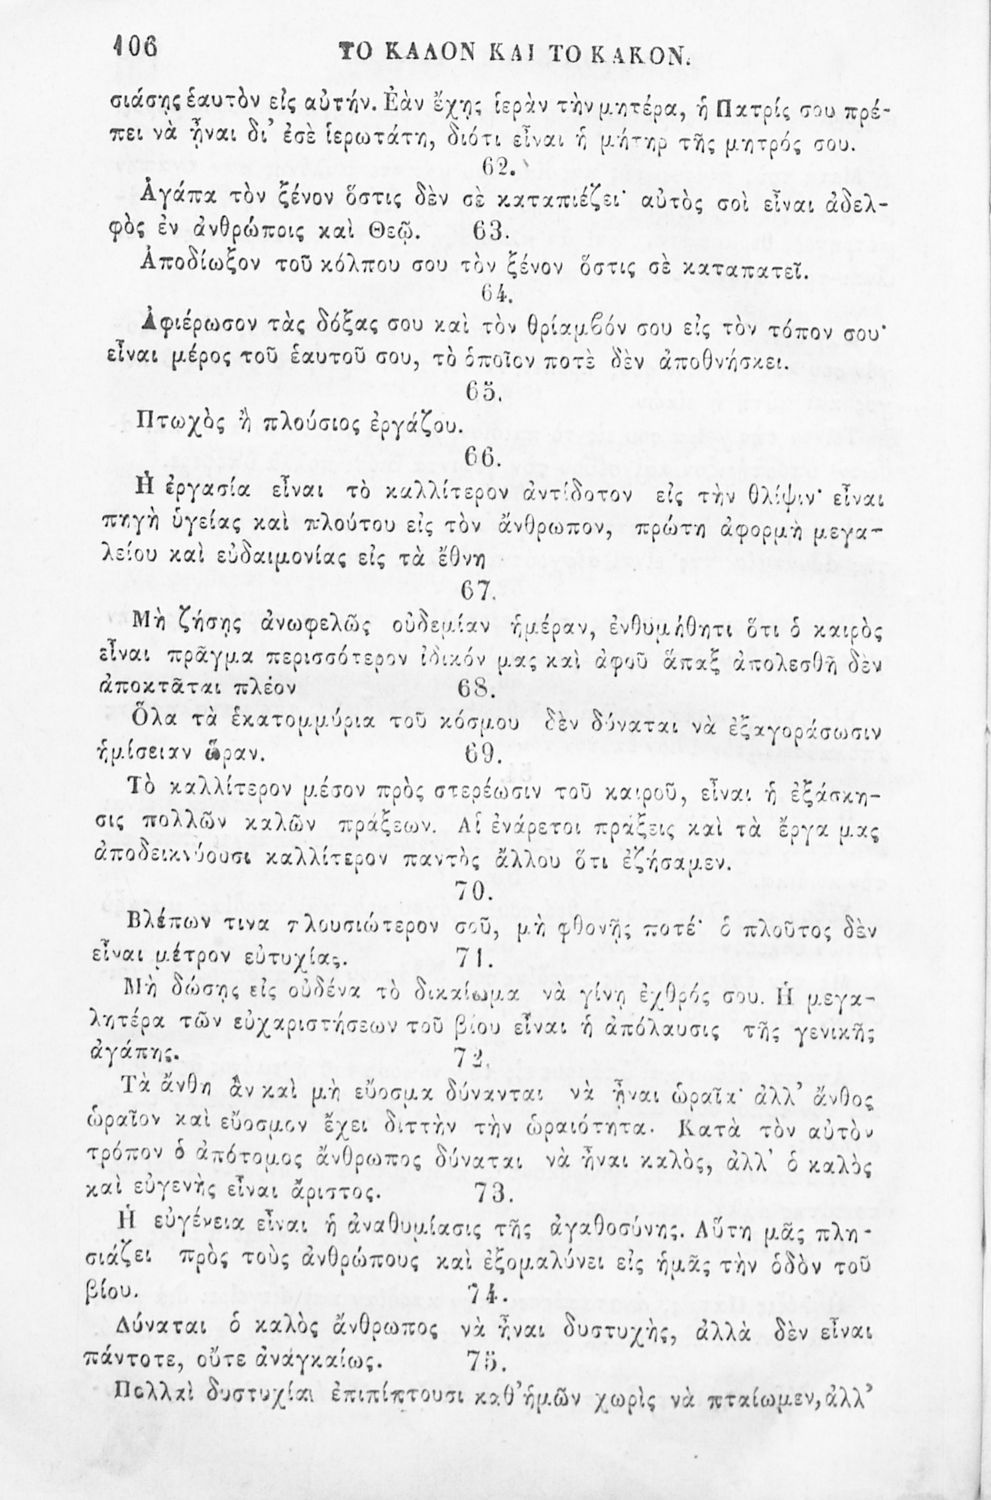 106 ΤΟ ΚΑΛΟΝ ΚΑΙ ΤΟ ΚΑΚΟΝ.
σιάσῃς ἑαυτὸν εἰς αὐτήν. Ἐὰν ἔχῃς ἱερὰν τὴν μητέρα, ἡ Πατρίς σου πρέ-
πει νὰ ᾖναι δι᾽ ἐσὲ ἱερωτάτη, διότι εἶναι ἡ μήτηρ τῆς μητρός σου.
62.
Ἀγάπα τὸν ξένον ὅστις δὲν σὲ καταπιέζει· αὐτὸς σοὶ εἶναι ἀδελ-
φὸς ἐν ἀνθρώποις καὶ Θεῷ. 63.
Ἀποδίωξον τοῦ κόλπου σου τὸν ξένον ὅστις σὲ καταπατεῖ.
64.
Ἀφιέρωσον τὰς δόξας σου καὶ τὸν θρίαμβόν σου εἰς τὸν τόπον σου·
εἶναι μέρος τοῦ ἑαυτοῦ σου, τὸ ὁποῖον ποτὲ δὲν ἀποθνήσκει.
65.
Πτωχὸς ἢ πλούσιος ἐργάζου.
66.
Ἡ ἐργασία εἶναι τὸ καλλίτερον ἀντίδοτον εἰς τὴν θλίψιν· εἶναι
πηγὴ ὑγείας καὶ πλούτου εἰς τὸν ἄνθρωπον, πρώτη ἀφορμὴ μεγα-
λείου καὶ εὐδαιμονίας εἰς τὰ ἔθνη
67.
Μὴ ζήσῃς ἀνωφελῶς οὐδεμίαν ἡμέραν, ἐνθυμήθητι ὅτι ὁ καιρὸς
εἶναι πρᾶγμα περισσότερον ἰδικόν μας καὶ ἀφοῦ ἅπαξ ἀπολεσθῇ δὲν
ἀποκτᾶται πλέον 68.
Ὅλα τὰ ἑκατομμύρια τοῦ κόσμου δὲν δύναται νὰ ἐξαγοράσωσιν
ἡμίσειαν ὥραν. 69.
Τὸ καλλίτερον μέσον πρὸς στερέωσιν τοῦ καιροῦ, εἶναι ἡ ἐξάσκη-
σις πολλῶν καλῶν πράξεων. Αἱ ἐνάρετοι πράξεις καὶ τὰ ἔργα μας
ἀποδεικνύουσι καλλίτερον παντὸς ἄλλου ὅτι ἐζήσαμεν.
70.
Βλέπων τινα πλουσιώτερον σοῦ, μὴ φθονῇς ποτέ· ὁ πλοῦτος δὲν
εἶναι μέτρον εὐτυχίας. 71.
Μὴ δώσῃς εἰς οὐδένα τὸ δικαίωμα νὰ γίνῃ ἐχθρός σου. Ἡ μεγα-
λητέρα τῶν εὐχαριστήσεων τοῦ βίου εἶναι ἡ ἀπόλαυσις τῆς γενικῆς
ἀγάπης. 72.
Τὰ ἄνθη ἂν καὶ μὴ εὔοσμα δύνανται νὰ ᾖναι ὡραῖα· ἀλλ᾽ ἄνθος
ὡραῖον καὶ εὔοσμον ἔχει διττὴν τὴν ὡραιότητα. Κατὰ τὸν αὐτὸν
τρόπον ὁ ἀπότομος ἄνθρωπος δύναται νὰ ᾖναι καλὸς, ἀλλ᾽ ὁ καλὸς
καὶ εὐγενὴς εἶναι ἄριστος. 73.
Ἡ εὐγένεια εἶναι ἡ ἀναθυμίασις τῆς ἀγαθοσύνης. Αὕτη μᾶς πλη-
σιάζει πρὸς τοὺς ἀνθρώπους καὶ ἐξομαλύνει εἰς ἡμᾶς τὴν ὁδὸν τοῦ
βίου. 74.
Δύναται ὁ καλὸς ἄνθρωπος νὰ ᾖναι δυστυχὴς, ἀλλὰ δὲν εἶναι
πάντοτε, οὔτε ἀναγκαίως. 75.
Πολλαὶ δυστυχίαι ἐπιπίπτουσι καθ᾽ἡμῶν χωρὶς νὰ πταίωμεν, ἀλλ᾽